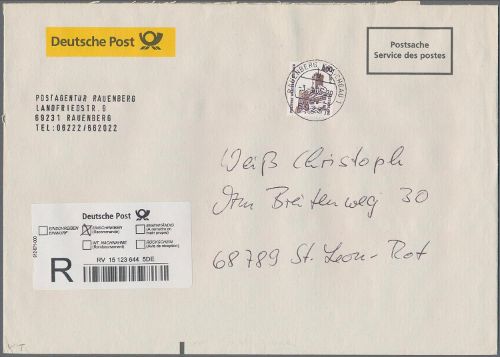 Deutsche Post
Postsache
Service des postes
POSTAGENTUR RAUENBERG
LANDFRIEDSTR.9
69231 RAUENBERG
TEL:06222/662022
RAUENBERG
Weiß Christoph
Am Breitenweg 30
68789 St. Leon-Rot
Deutsche Post
EINSCHREIBEN
EINWURF
EINSCHREIBEN
(Recommandé)
EIGENHÄNDIG
MT. NACHNAHME
(Remboursement)
RÜCKSCHEIN
(Avis de réception)
R
RV 15 123 644 5DE
912-671-000